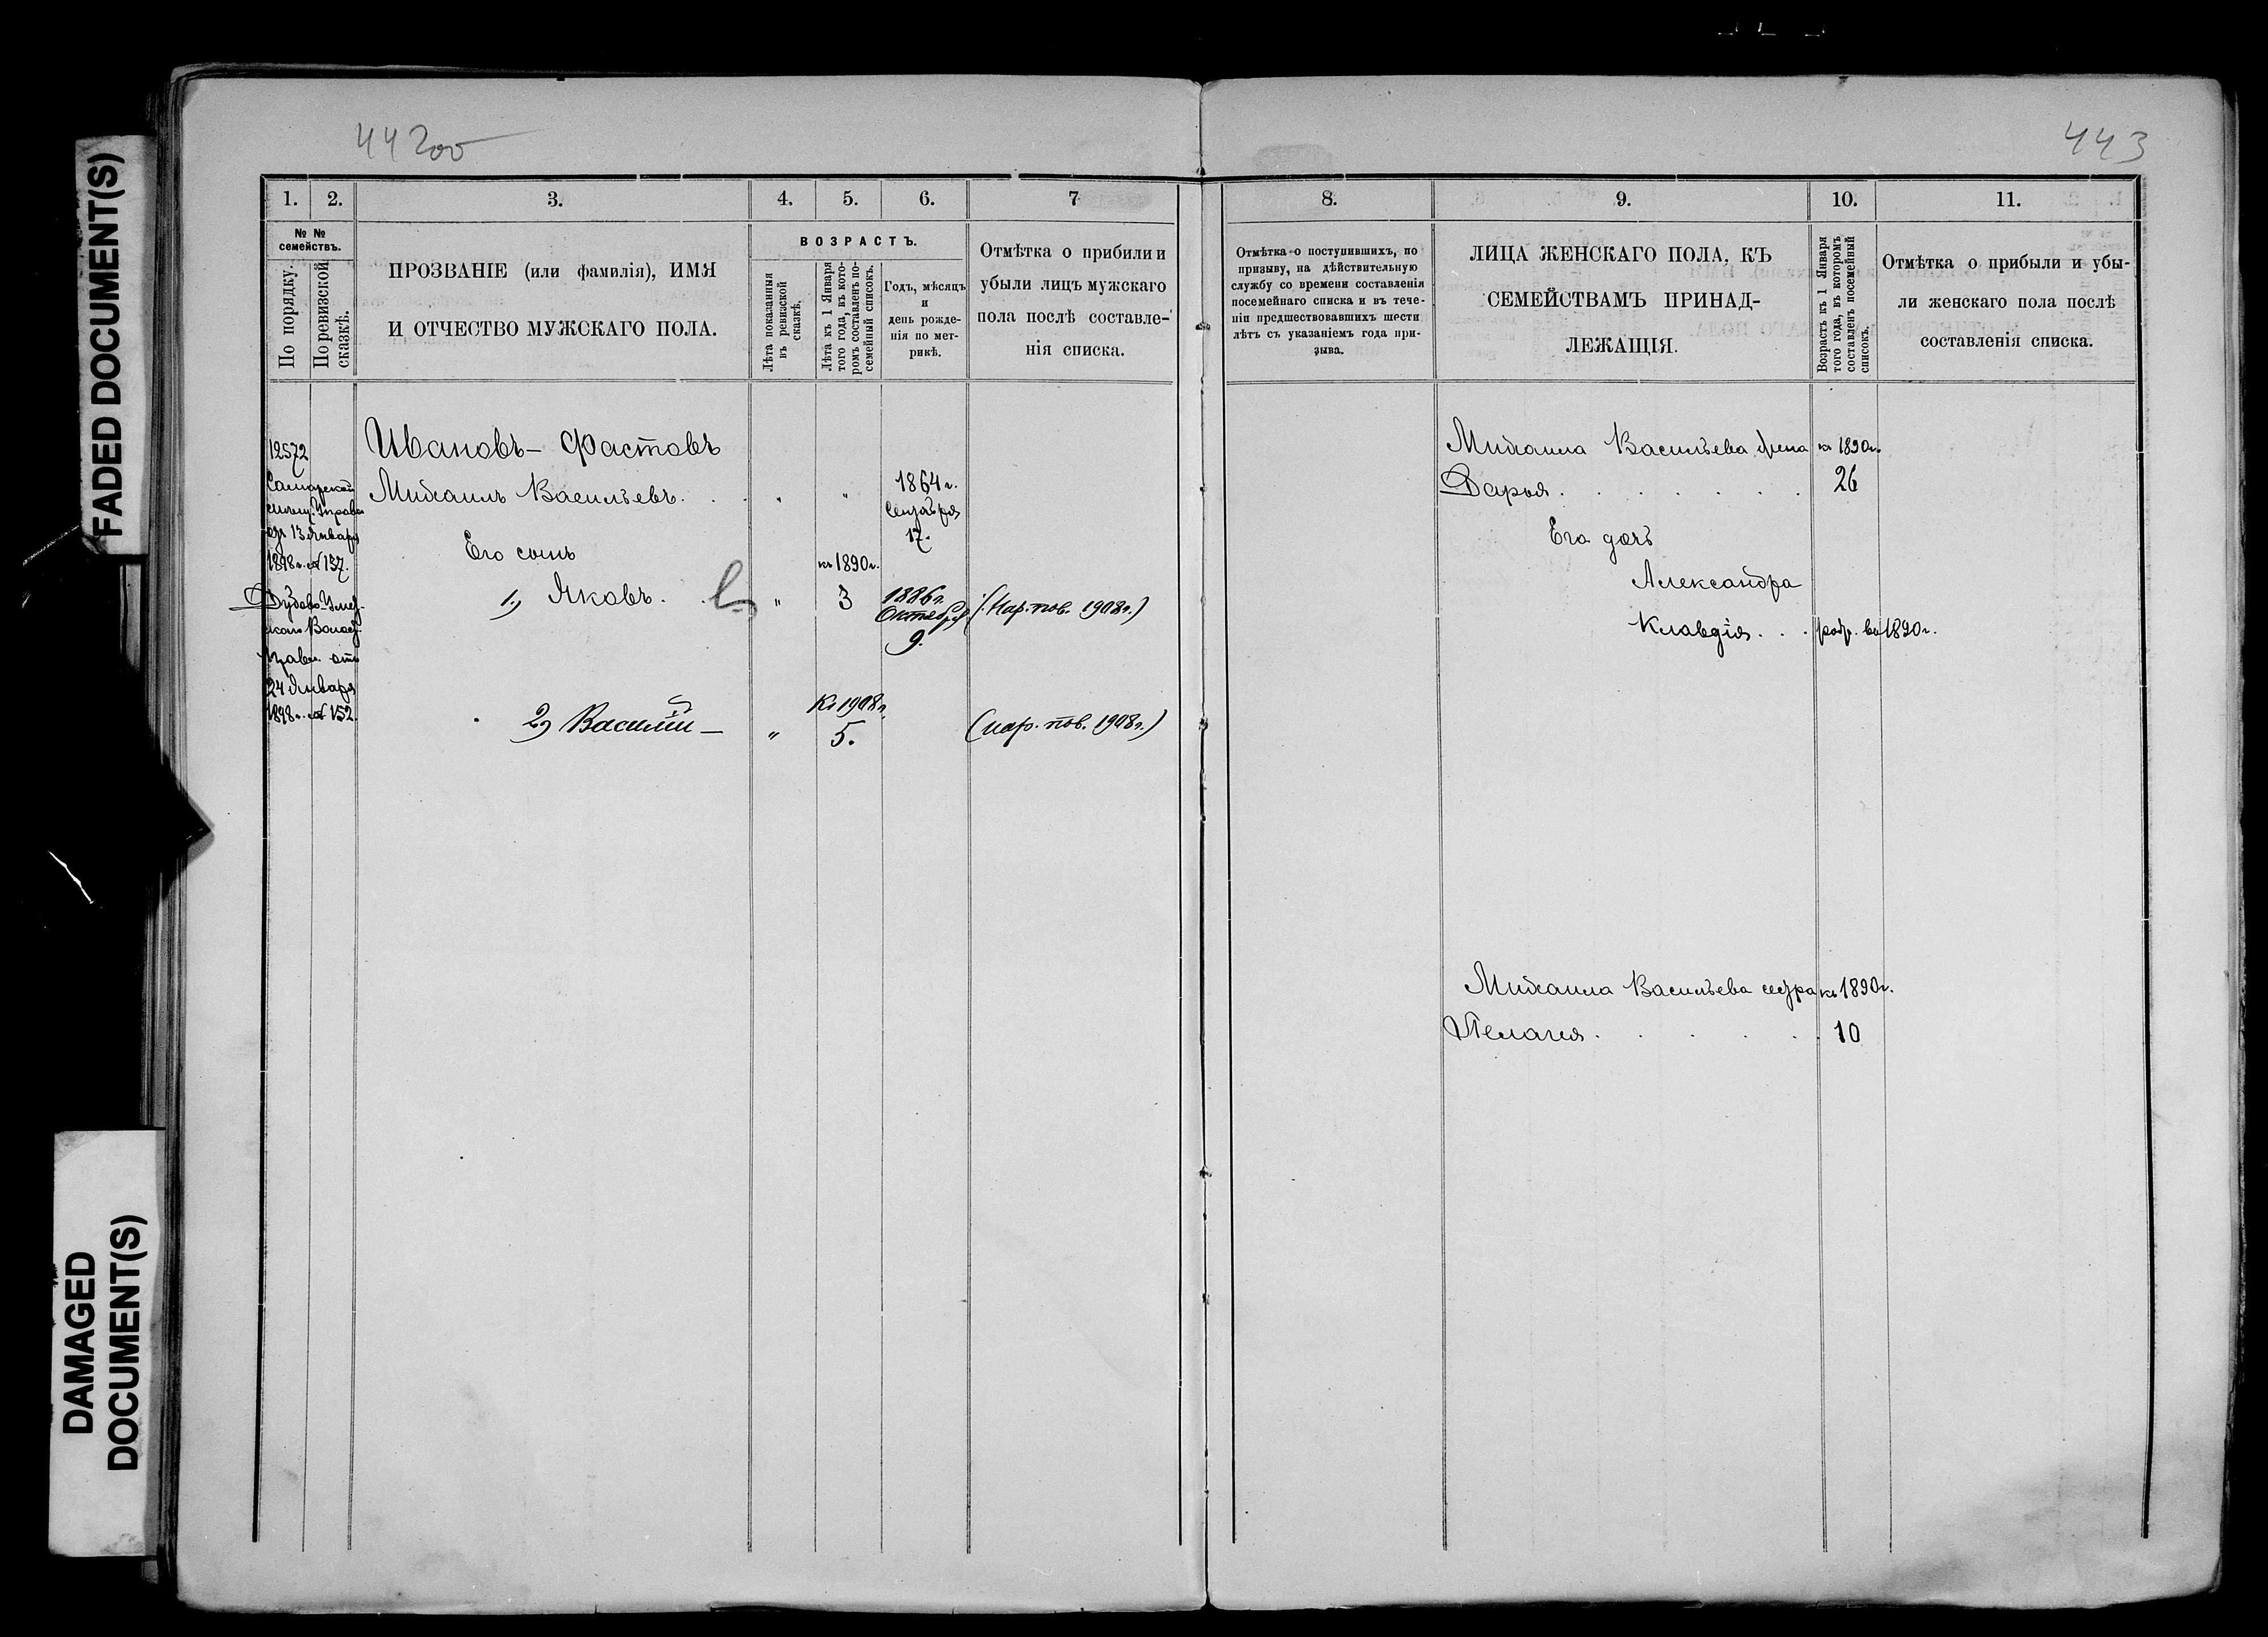 FADED DOCUMENT(S)
DAMAGED
DOCUMENT(S)
442об
1. 2. 3. 4. 5. 6. 7
№ №
семействъ.
По порядку.
По ревизской
сказкѣ.
ПРОЗВАНІЕ (или фамилія), ИМЯ
И ОТЧЕСТВО МУЖСКАГО ПОЛА.
ВОЗРАСТЪ.
Лѣта показанныя
въ ревизской
сказкѣ.
Лѣта къ 1 Января
того года, въ кото-
ромъ составленъ по-
семейный списокъ.
Годъ, мѣсяцъ
и
день рожде-
нія по мет-
рикѣ.
Отмѣтка о прибыли и
убыли лицъ мужскаго
пола послѣ составле-
нія списка.
12572
Самарской
мѣщ. Управы
отъ 13 Января
1898 г. № 137.
Волост.
Правл. отъ
24 Января
1898 г. № 152.
Ивановъ-Фастовъ
Михаилъ Васильевъ. . . " " 1864 г.
Сентября
17.
Его сынъ
къ 1890 г.
1) Яковъ. . " 3 1886 г.
Октября
9.
(Нар. пов. 1908 г.)
Къ 1908 г.
2) Василій — " 5. (нар. пов. 1908 г.)
443
8. 9. 10. 11.
Отмѣтка о поступившихъ, по
призыву, на дѣйствительную
службу со времени составленія
посемейнаго списка и въ тече-
ніи предшествовавшихъ шести
лѣтъ съ указаніемъ года при-
зыва.
ЛИЦА ЖЕНСКАГО ПОЛА, КЪ
СЕМЕЙСТВАМЪ ПРИНАД-
ЛЕЖАЩІЯ.
Возрастъ къ 1 Января
того года, въ которомъ
составленъ посемейный
списокъ.
Отмѣтка о прибыли и убы-
ли женскаго пола послѣ
составленія списка.
Михаила Васильева жена къ 1890 г.
Дарья . . . . . . . 26
Его дочь
Александра
Клавдія . . . род. въ 1890 г.
Михаила Васильева сестра къ 1890 г.
Пелагея . . . . . . 10